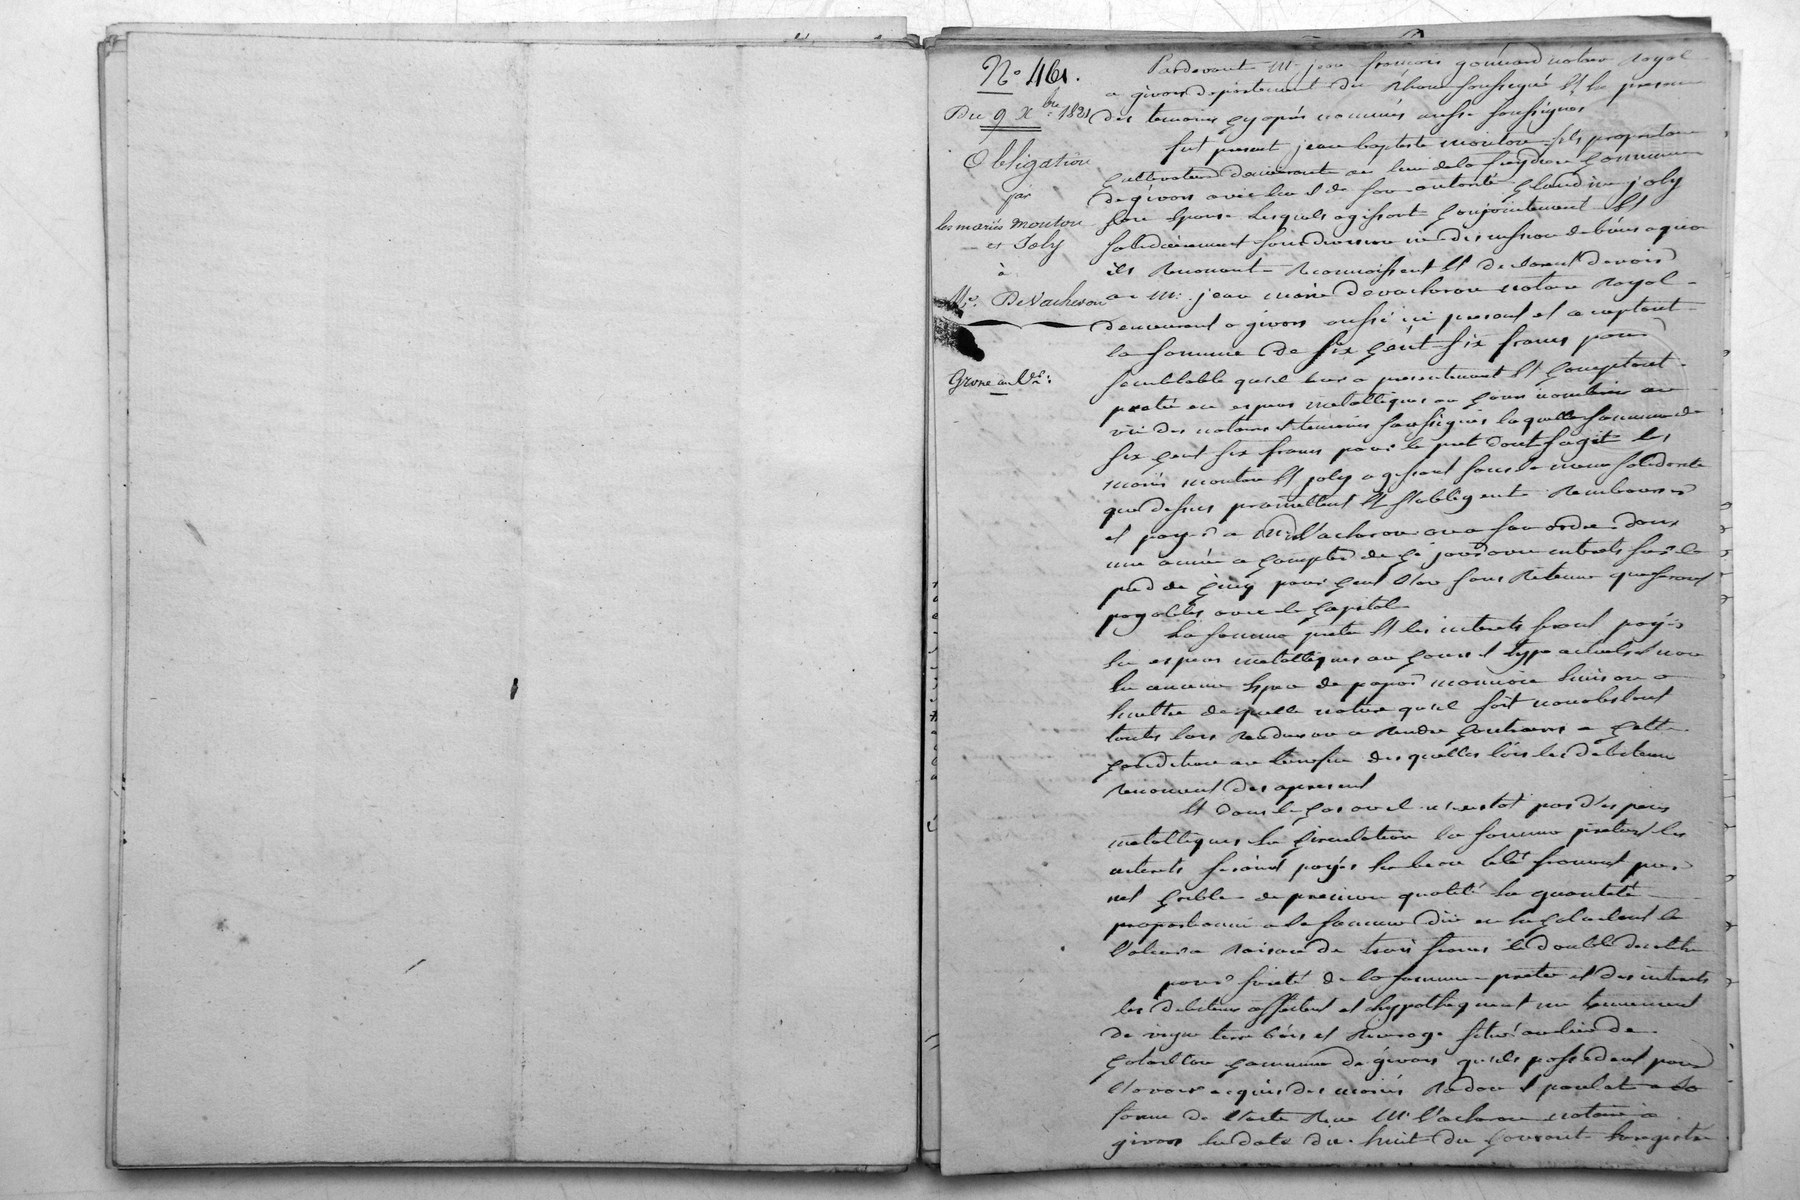 N° 461.
Du 9 Xbre 1821
Obligation
par
les mariés Mouton
et Joly
à
Me. De Vacheron
Grosse au Ver:
Pardevant Me jean françois gonnard notaire Royal
a givors departement du Rhone soussigné Et En presence
des temoins cy après nommés aussi soussignés
fut present jean baptiste mouton fils proprietaire
Cultivateur demeurant au lieu de la freydiere Commune
de givors avec lui et de son autorité Claudine joly
son Epouse lesquels agissant Conjointement Et
solidairement sans division ni discussion de biens a quoi
ils Renoncent Reconnoissent Et declarent devoir
a Mr. jean marie devacheron notaire Royal
demeurant a givors aussi ici present et acceptant
la somme de six Cent six francs pour
semblable qu'il leur a presentement Et Comptant
preté en especes metalliques au Cours nombrées au
vu des notaire et temoins soussignés laquelle somme de
six Cent six francs pour le pret dont s'agit les
mariés mouton Et joly agissant sous la meme solidarité
que dessus promettent Et s'obligent Rembourser
et payer a Me Vacheron ou a son ordre dans
une année a Compter de Ce jour avec interets sur le
pied de Cinq pour Cent l'an sans Retenue qui seront
payables avec le Capital
La somme pretée Et les interets seront payés
En especes metalliques au Cours et type actuels et non
En aucune Espece de papier monnoie Emis ou a
Emettre de quelle nature qu'il soit nonobstant
toutes lois Rendues ou a Rendre Contraires a Cette
Condition au benefice des quelles lois les debiteurs
Renoncent des apresent
Et dans le Cas ou il n'Existat pas d'especes
metalliques En Circulation la somme pretée Et les
interets seront payés En beau blé froment pur
net Criblé de premiere qualité En quantité
proportionnée a la somme due en En Calculant la
Valeur a Raison de trois francs le double decalitre
pour sureté de la somme pretée et des interets
les debiteurs affectent et hypothequent un tenement
de vigne terre bois et situé au lieu de
Commune de givors qu'ils possedent pour
l'avoir acquis des mariés Radou et poulat a la
forme de l'acte Reçu Me Vacheron notaire a
givors En date du huit du Courant Enregistré